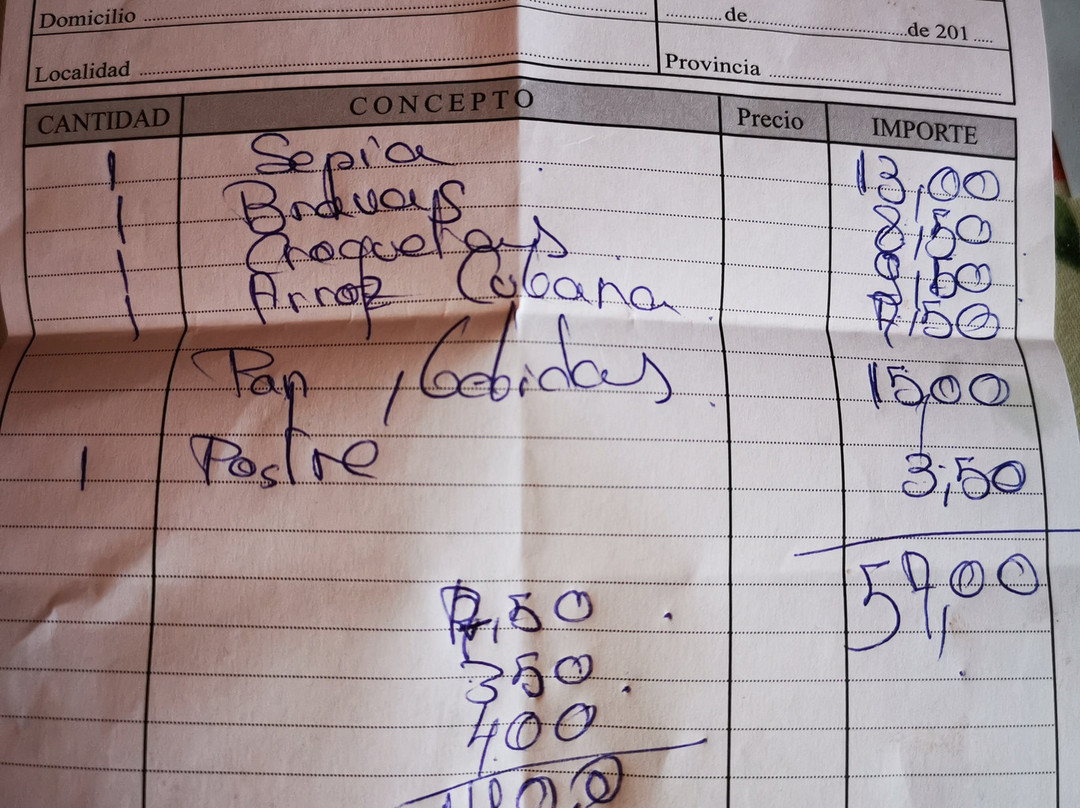 Domicilio de de 201
Localidad Provincia
CANTIDAD CONCEPTO Precio IMPORTE
1 Sepia 13,00
1 8,50
1 Croquetas 9,50
1 Arroz Cubana 7,50
Pan, bebidas 15,00
1 Postre 3,50
57,00
7,50
350
400